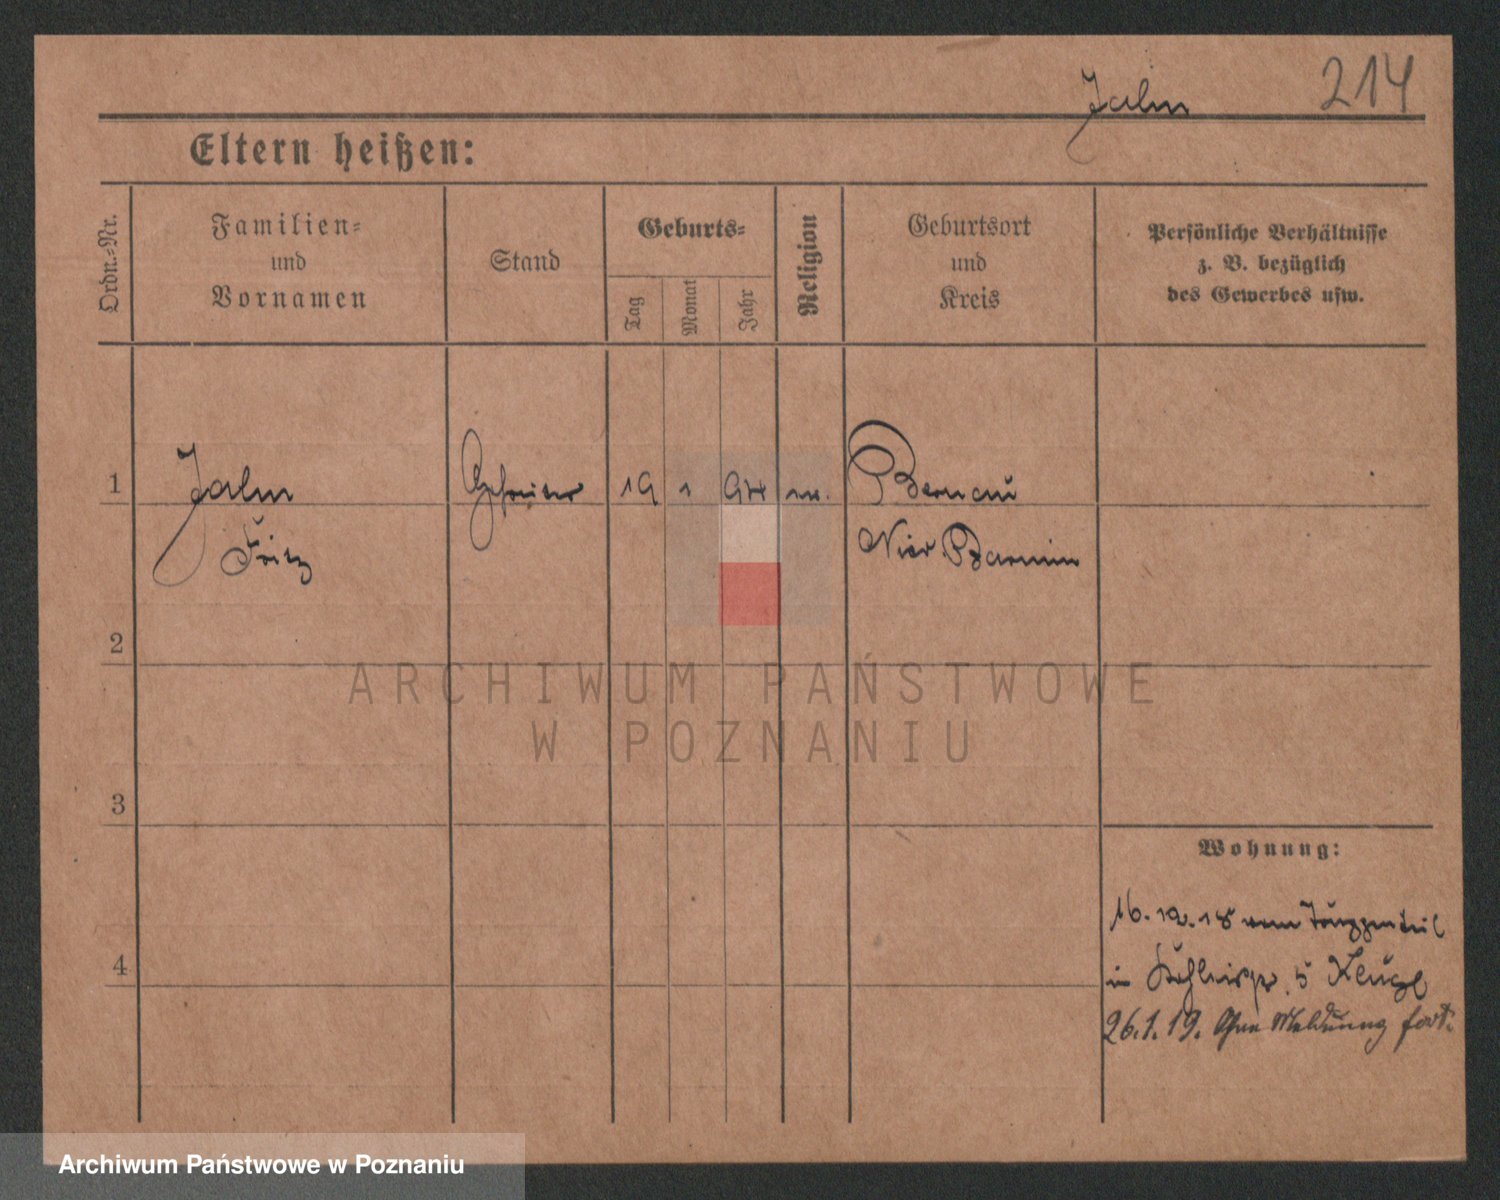 Jahn 214
Eltern heißen:
Ordn.-Nr.
Familien-
und
Vornamen
Stand
Geburts-
Tag
Monat
Jahr
Religion
Geburtsort
und
Kreis
Persönliche Verhältnisse
z. B. bezüglich
des Gewerbes usw.
1 Jahn Gefreiter 19 1 ev. Bernau
Fritz Nied. Barnim
2
ARCHIWUM PAŃSTWOWE
W POZNANIU
3
Wohnung:
16. 12. 18 vom Truppenteil
4
in 5
26.1.19. Ohne Meldung fort.
Archiwum Państwowe w Poznaniu